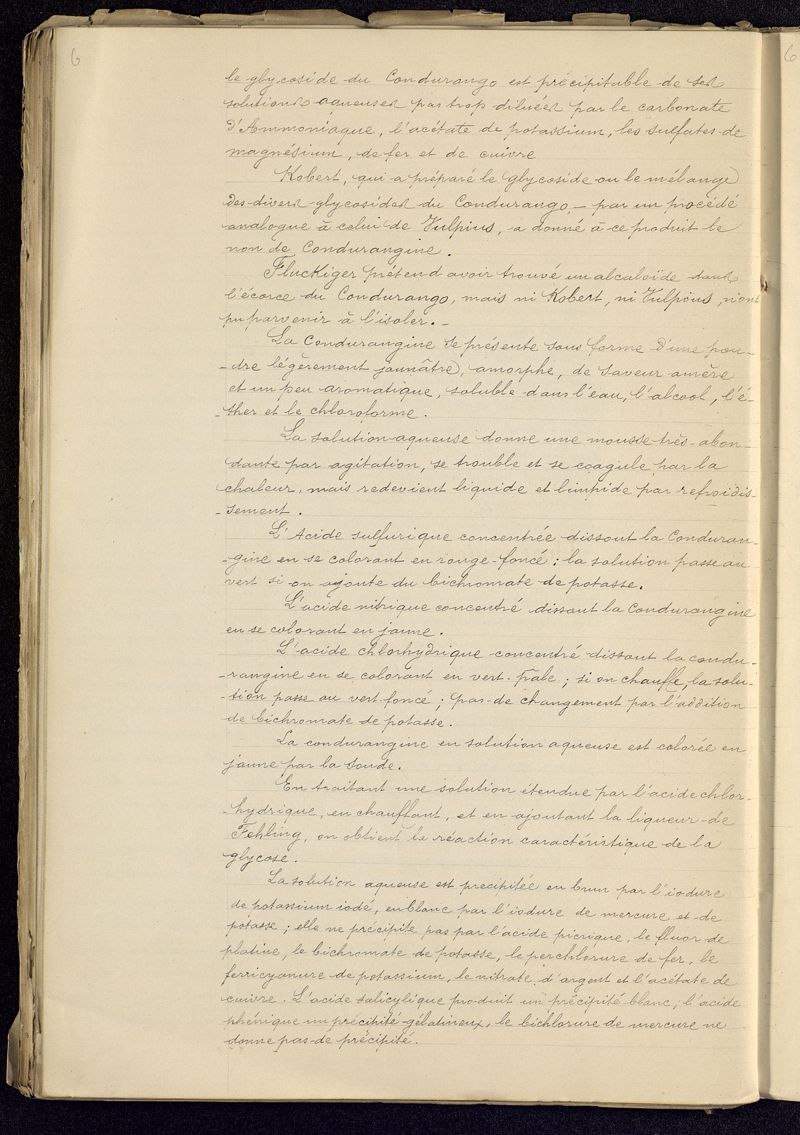 6
6
le glycoside du Condurango est précipitable de ses
solutions aqueuses pas trop diluées par le carbonate
d'Ammoniaque, l'acétate de potassium, les sulfates de
magnésium, de fer et de cuivre
Kobert, qui a préparé le glycoside ou le mélange
des divers glycosides du Condurango, — par un procédé
analogue à celui de Vulpius, a donné à ce produit le
nom de Condurangine.
Fluckiger prétend avoir trouvé un alcaloïde dans
l'écorce du Condurango, mais ni Kobert, ni Vulpius, n'ont
pu parvenir à l'isoler. —
La Condurangine se présente sous forme d'une pou-
-dre légèrement jaunâtre, amorphe, de saveur amère
et un peu aromatique, soluble dans l'eau, l'alcool, l'é-
-ther et le chloroforme.
La solution aqueuse donne une mousse très-abon-
dante par agitation, se trouble et se coagule par la
chaleur, mais redevient liquide et limpide par refroidis-
-sement.
L'Acide sulfurique concentrée dissout la Conduran-
-gine en se colorant en rouge-foncé; la solution passe au
vert si on ajoute du bichromate de potasse.
L'acide nitrique concentré dissout la Condurangine
en se colorant en jaune.
L'acide chlorhydrique concentré dissout la condu-
-rangine en se colorant en vert-pale; si on chauffe, la solu-
-tion passe au vert foncé; pas de changement par l'addition
de bichromate de potasse.
La condurangine en solution aqueuse est colorée en
jaune par la soude.
En traitant une solution étendue par l'acide chlor-
-hydrique, en chauffant, et en ajoutant la liqueur de
Fehling, on obtient la réaction caractéristique de la
glycose.
La solution aqueuse est precipitée en brun par l'iodure
de potassium iodé, en blanc par l'iodure de mercure et de
potasse; elle ne précipite pas par l'acide picrique, le fluor de
platine, le bichromate de potasse, le perchlorure de fer, le
ferricyanure de potassium, le nitrate d'argent et l'acétate de
cuivre. L'acide salicylique produit un précipité blanc; l'acide
phénique un précipité gélatineux, le bichlorure de mercure ne
donne pas de précipité.